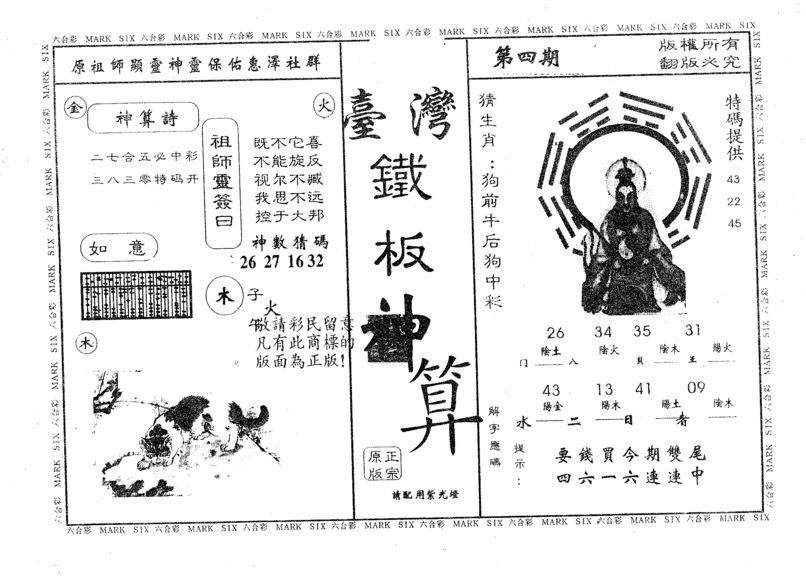 六合彩 MARK SIX 六合彩 MARK SIX 六合彩 MARK SIX 六合彩 MARK SIX 六合彩 MARK SIX 六合彩 MARK SIX 六合彩 MARK SIX 六合彩 MARK SIX
原祖師顯靈神靈保佑惠澤社群
金
神算詩
二七合五必中彩
三八三零特码开
火
祖師靈簽曰
既不它喜
不能旋反
视尔不臧
我思不远
控于大邦
神數猜碼
26 27 16 32
如意
木
子
火
午
敬請彩民留意
凡有此商標的
版面為正版!
木
臺灣
鐵
板
神
算
正宗
原版
請配用紫光燈
第四期
版權所有
翻版必究
猜生肖:狗前牛后狗中彩
特碼提供
43
22
45
26 34 35 31
陰土 陰火 陰木 陽火
门 八 貝 王
43 13 41 09
陽金 陽木 陽土 陰木
水 二 日 者
解字應碼
提示:
要錢買今期雙尾
四六一六連連中
六合彩 MARK SIX 六合彩 MARK SIX 六合彩 MARK SIX 六合彩 MARK SIX 六合彩 MARK SIX 六合彩 MARK SIX 六合彩 MARK SIX 六合彩 MARK SIX